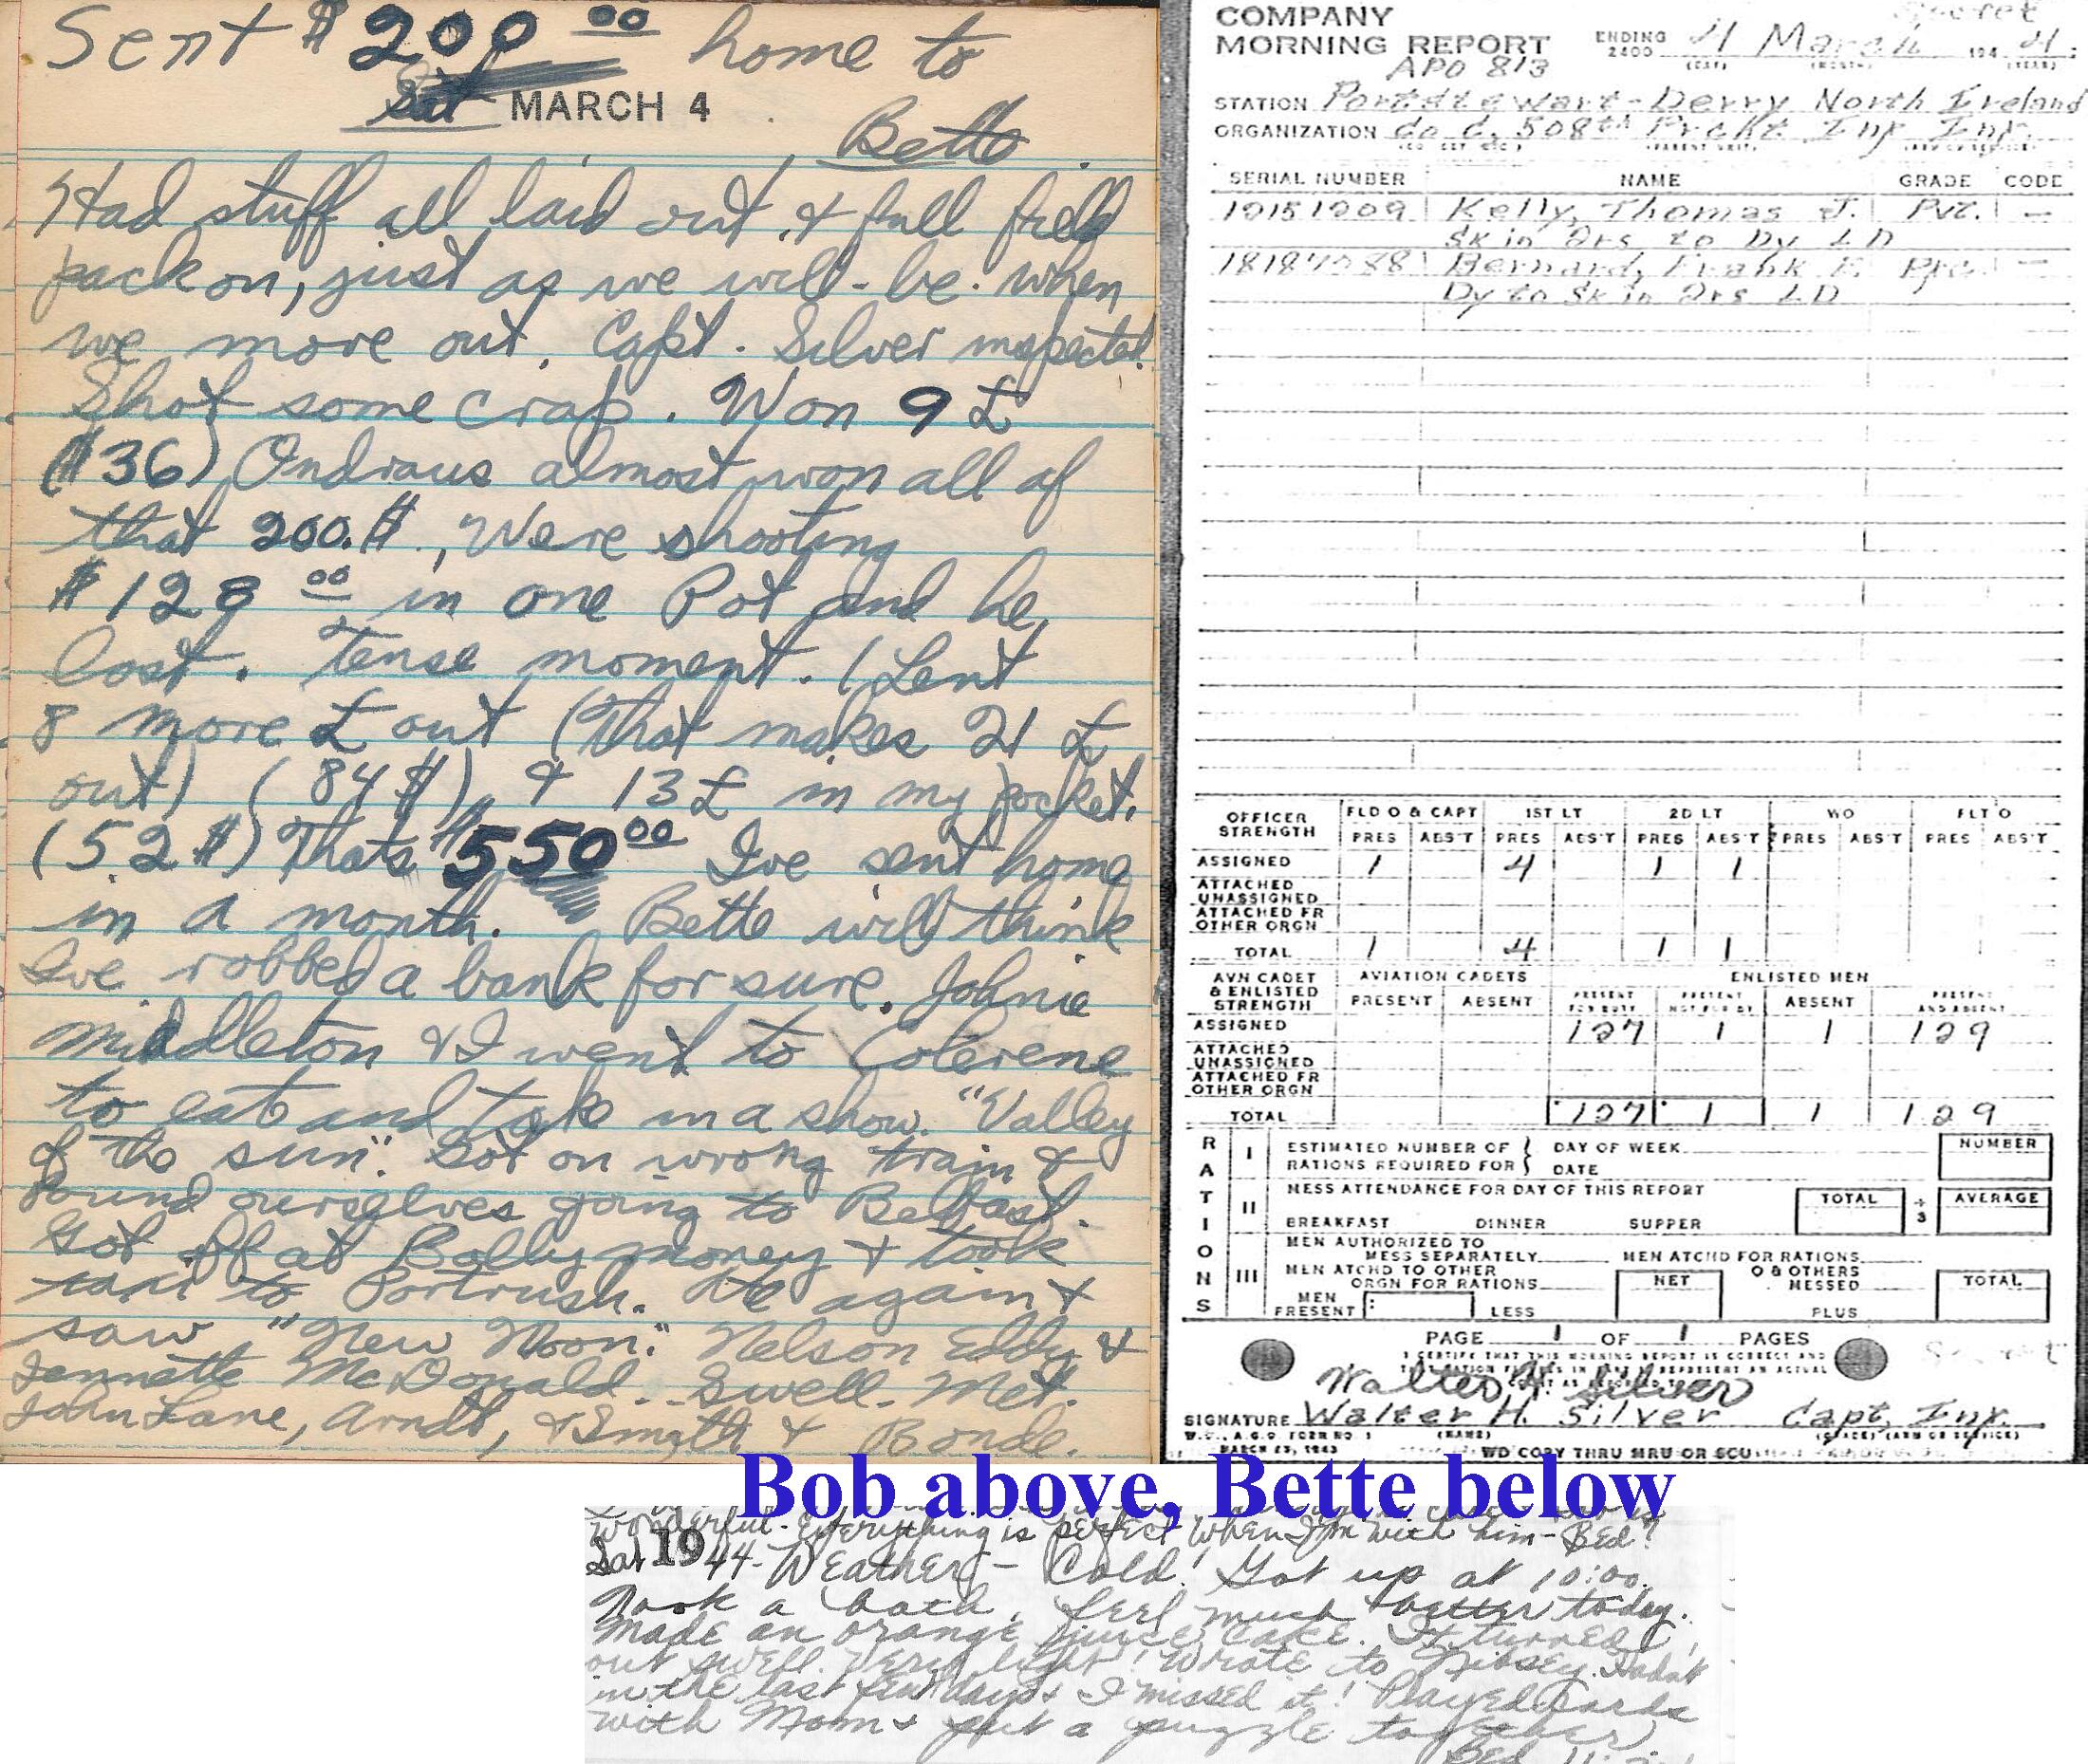 Sent $200.00 home to
Sat MARCH 4
Bette.
Had stuff all laid out & full field
pack on, just as we will be when
we move out. Capt. Silver inspected.
Shot some crap. Won 9 £
($36) Ondraus almost won all of
that 200.$, Were shooting
$128 00 in one Pot and he
lost. Tense moment. I Lent
8 more £ out (That makes 21 £
out) (84$) & 13 £ in my pocket.
(52$) Thats $550 00 I've sent home
in a month. Bette will think
I've robbed a bank for sure. Johnie
Middleton & I went to Colerene
to eat and take in a show. "Valley
of the sun". Got on wrong train &
found ourselves going to Belfast.
Got off at Ballymoney & took
taxi to Portrush. Ate again &
saw "New Moon". Nelson Eddy &
Jennette McDonald. Swell. Met.
John Lane, Arndt, & Smyth & Bonde.
COMPANY
MORNING REPORT
ENDING 2400 4 March 1944
(DAY) (MONTH) (YEAR)
APO 813
STATION Portstewart-Derry North Ireland
ORGANIZATION Co C, 508th Prcht Inf Inf.
SERIAL NUMBER NAME GRADE CODE
Kelly, Thomas J. Pvt. —
Sk in Qrs to Dy LD
Bernard, Frank E. Pfc. —
Dy to Sk in Qrs LD
OFFICER STRENGTH FLD O & CAPT 1ST LT 2D LT WO FLT O
PRES ABS'T PRES ABS'T PRES ABS'T PRES ABS'T PRES ABS'T
ASSIGNED 1 4 1 1
ATTACHED UNASSIGNED
ATTACHED FR OTHER ORGN
TOTAL 1 4 1 1
AVN CADET & ENLISTED STRENGTH AVIATION CADETS ENLISTED MEN
PRESENT ABSENT PRESENT FOR DUTY PRESENT NOT FOR DY ABSENT PRESENT AND ABSENT
ASSIGNED 127 1 1 129
ATTACHED UNASSIGNED
ATTACHED FR OTHER ORGN
TOTAL 127 1 1 129
RATIONS
I ESTIMATED NUMBER OF RATIONS REQUIRED FOR DAY OF WEEK DATE NUMBER
II MESS ATTENDANCE FOR DAY OF THIS REPORT TOTAL ÷ 3 AVERAGE
BREAKFAST DINNER SUPPER
III MEN AUTHORIZED TO MESS SEPARATELY MEN ATCHD FOR RATIONS
MEN ATCHD TO OTHER ORGN FOR RATIONS NET O & OTHERS MESSED TOTAL
MEN PRESENT LESS PLUS
PAGE 1 OF 1 PAGES
I CERTIFY THAT THIS MORNING REPORT IS CORRECT AND
Walter H. Silver
SIGNATURE Walter H. Silver Capt, Inf.
W.D., A.G.O. FORM NO. 1 (NAME) (GRADE) (ARM OR SERVICE)
MARCH 23, 1943 WD COPY THRU MRU OR SCU
Bob above, Bette below
wonderful - Everything is perfect when I'm with him - Bed?
Sat 19 44 - Weather - Cold! Got up at 10:00.
Took a bath, feel much better today.
Made an orange juice cake. It turned
out swell. Very light! Wrote to Nibsey.
in the last few days & I missed it! Played cards
with Mom & put a puzzle together